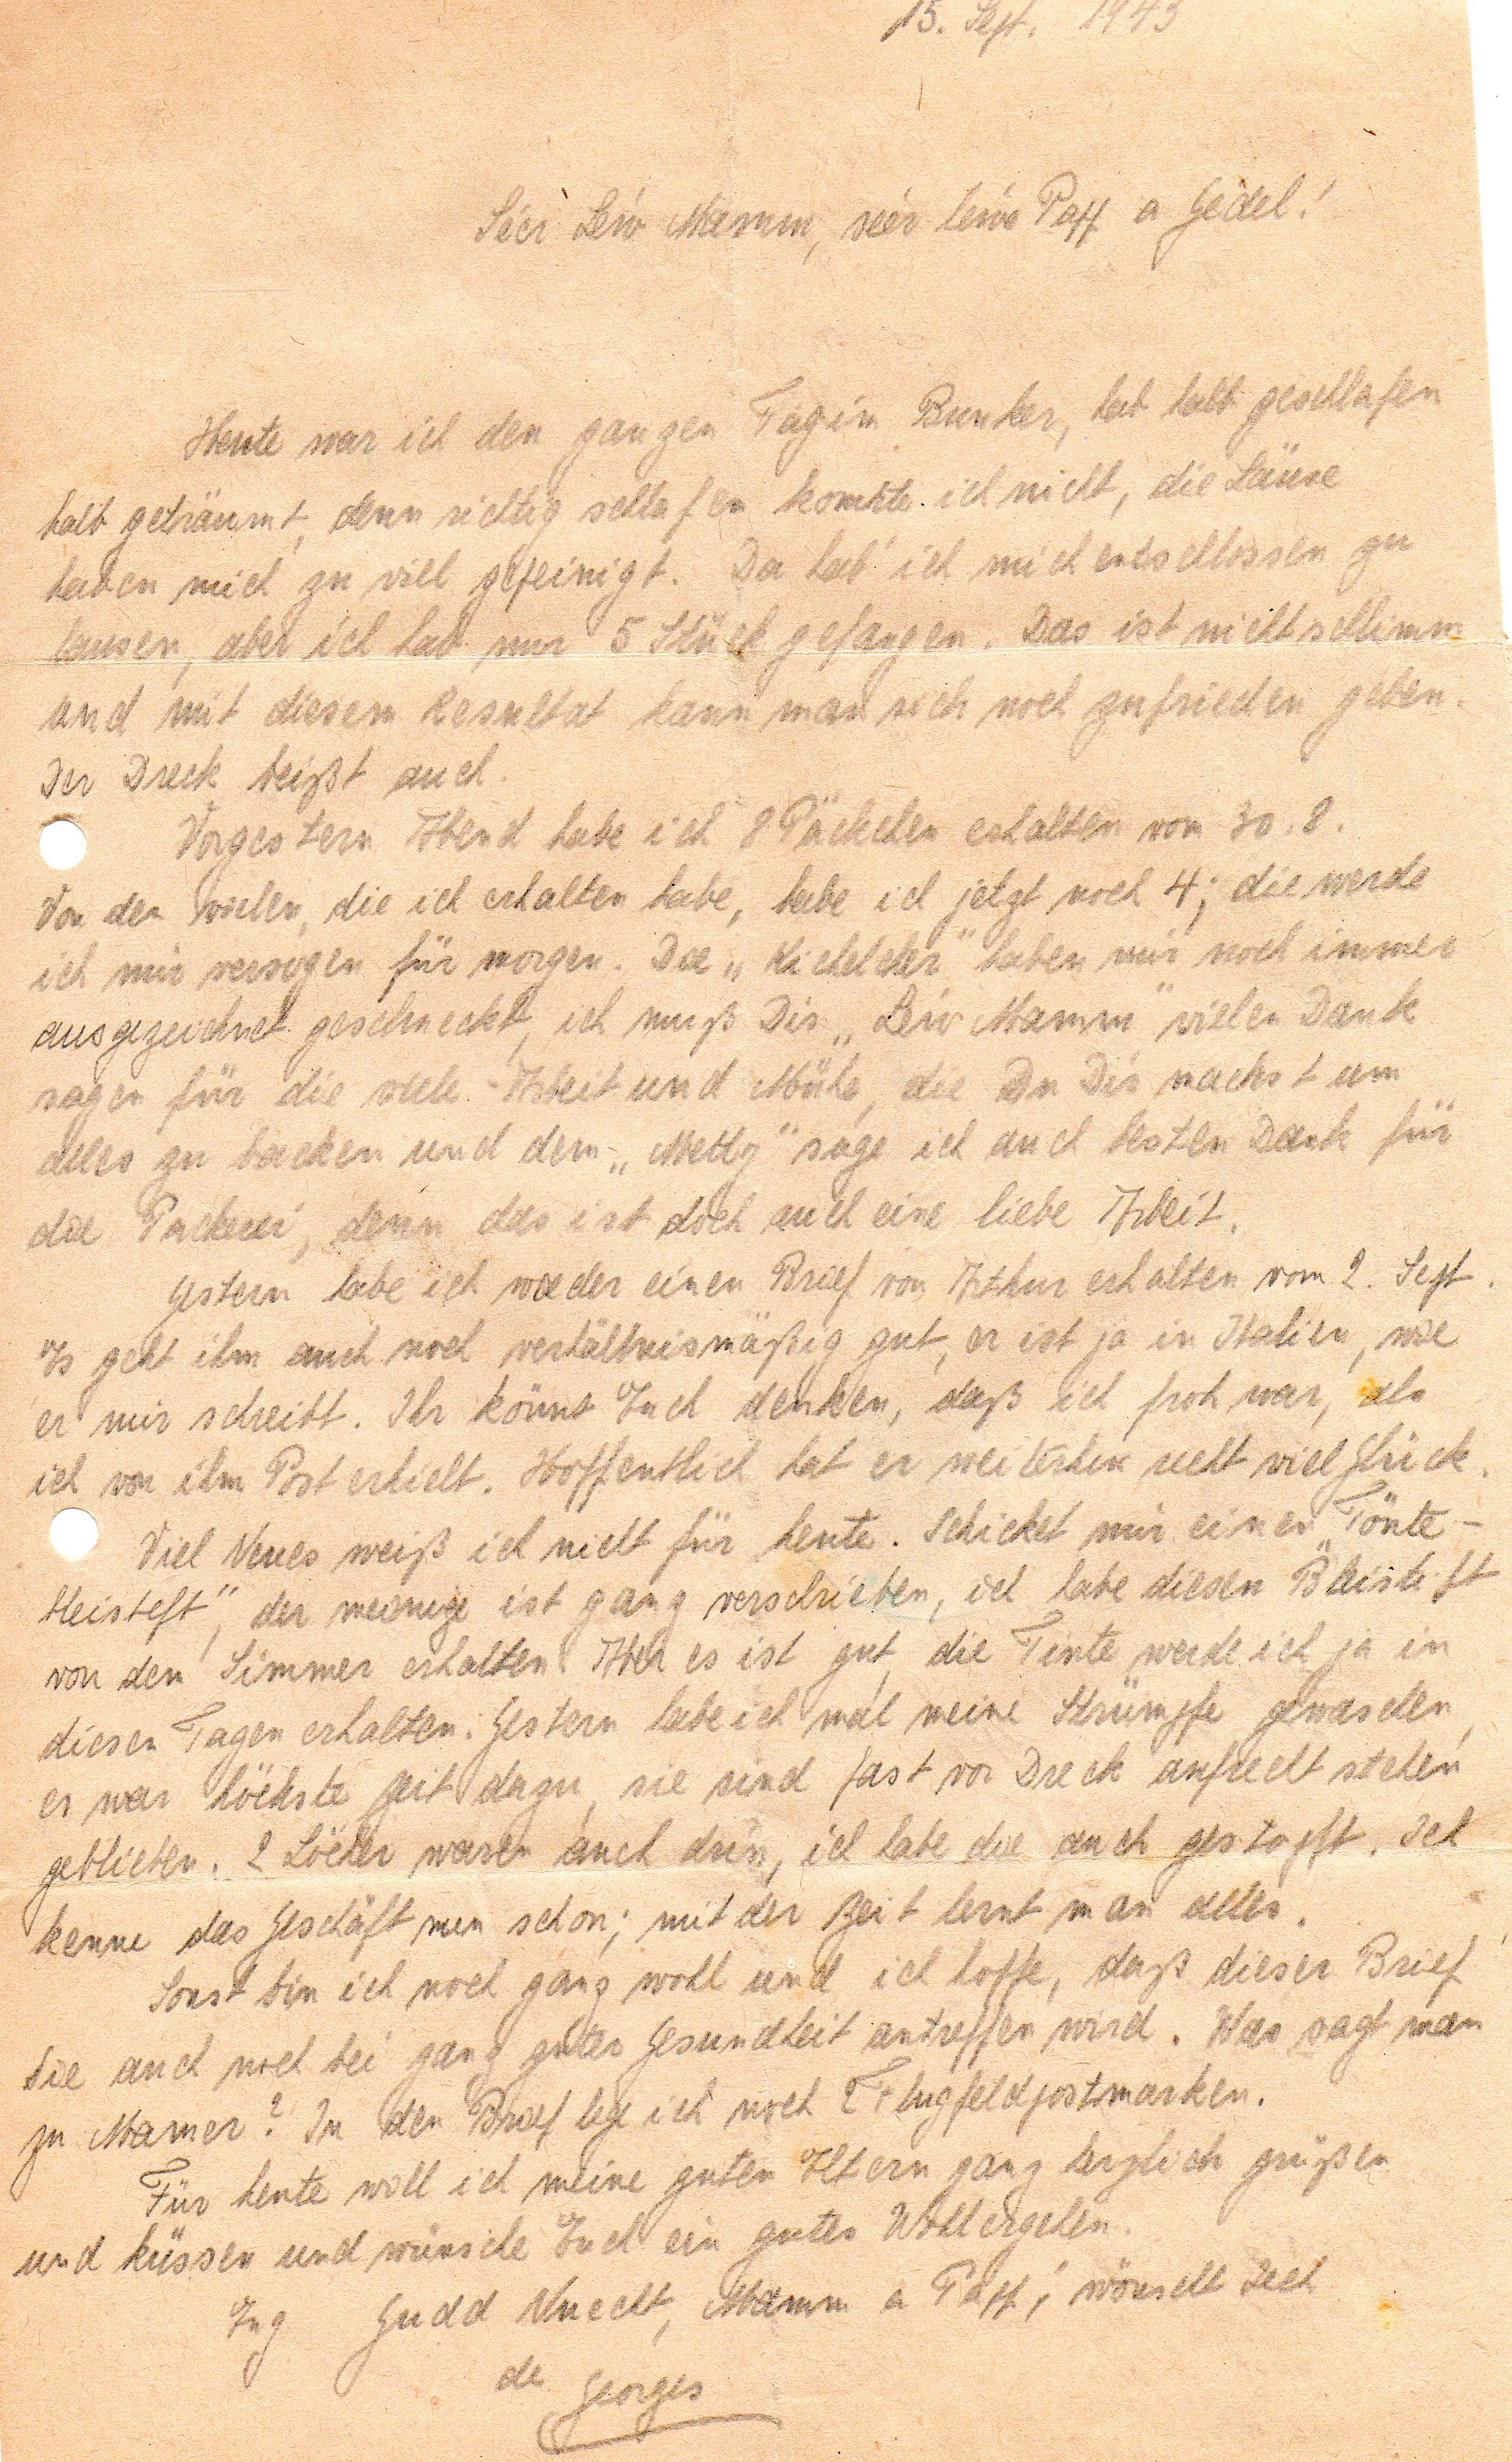 15. Sept. 1943
Séer Léiw Mamm, séer léiwe Papp a Gédel!
Heute war ich den ganzen Tag im Bunker, hab halb geschlafen
halb geträumt, denn richtig schlafen konnte ich nicht, die Läuse
haben mich zu viel gepeinigt. Da hab' ich mich entschlossen zu
lausen, aber ich hab nur 5 Stück gefangen. Das ist nicht schlimm
und mit diesem Resultat kann man sich noch zufrieden geben.
Der Dreck beißt auch.
Vorgestern Abend habe ich 8 Päckchen erhalten vom 30. 8.
Von den vielen, die ich erhalten habe, habe ich jetzt noch 4; die werde
ich mir versorgen für morgen. Die „Kichelcher" haben mir noch immer
ausgezeichnet geschmeckt, ich muß Dir „Léiw Mamm" vielen Dank
sagen für die viele Arbeit und Mühe, die Du Dir machst um
alles zu backen und dem „Metty" sage ich auch besten Dank für
die Packerei, denn das ist doch auch eine liebe Arbeit.
Gestern habe ich wieder einen Brief von Arthur erhalten vom 2. Sept.
Es geht ihm auch noch verhältnismäßig gut, er ist ja in Italien, wie
er mir schreibt. Ihr könnt Euch denken, daß ich froh war, als
ich von ihm Post erhielt. Hoffentlich hat er weiterhin recht viel Glück.
Viel Neues weiß ich nicht für heute. Schicket mir einen „Tönte-
bleisteft", der meinige ist ganz verschrieben, ich habe diesen Bleistift
von dem Simmer erhalten. Aber es ist gut, die Tinte werde ich ja in
diesen Tagen erhalten. Gestern habe ich mal meine Strümpfe gewaschen,
es war höchste Zeit dazu, sie sind fast vor Dreck aufrecht stehen
geblieben. 2 Löcher waren auch drin, ich habe die auch gestopft. Ich
kenne das Geschäft nun schon; mit der Zeit lernt man alles.
Sonst bin ich noch ganz wohl und ich hoffe, daß dieser Brief
Sie auch noch bei ganz guter Gesundheit antreffen wird. Was sagt man
zu Mamer? In den Brief lege ich noch 2 Flugfeldpostmarken.
Für heute will ich meine guten Eltern ganz herzlich grüßen
und küssen und wünsche Euch ein gutes Wohlergehen.
Eng Gudd Nuecht, Mamm a Papp, wönscht Iech
de Georges